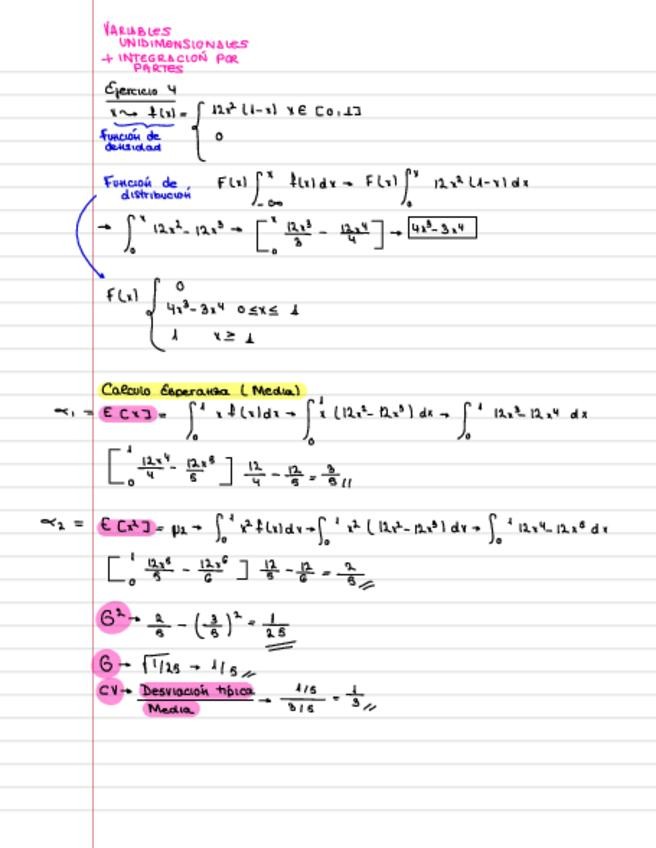 VARIABLES
UNIDIMENSIONALES
+ INTEGRACIÓN POR
PARTES
Ejercicio 4
x ~ f(x) = { 12x² (1-x) x ∈ [0,1]
0
Función de
densidad
Función de
distribución
F(x) ∫_{-∞}^{x} f(x) dx → F(x) ∫_0^x 12x² (1-x) dx
→ ∫_0^x 12x² - 12x³ → [_0^x 12x³/3 - 12x⁴/4 ] → 4x³ - 3x⁴
F(x) { 0
4x³ - 3x⁴ 0 ≤ x ≤ 1
1 x ≥ 1
Calculo Esperanza (Media)
α₁ = E[x] = ∫_0^1 x f(x) dx → ∫_0^1 x (12x² - 12x³) dx → ∫_0^1 12x³ - 12x⁴ dx
[_0^1 12x⁴/4 - 12x⁵/5 ] 12/4 - 12/5 = 3/5 //
α₂ = E[x²] = μ₂ → ∫_0^1 x² f(x) dx → ∫_0^1 x² (12x² - 12x³) dx → ∫_0^1 12x⁴ - 12x⁵ dx
[_0^1 12x⁵/5 - 12x⁶/6 ] 12/5 - 12/6 = 2/5 //
σ² → 2/5 - (3/5)² = 1/25
σ → √1/25 → 1/5 //
CV → Desviación típica / Media → 1/5 / 3/5 = 1/3 //